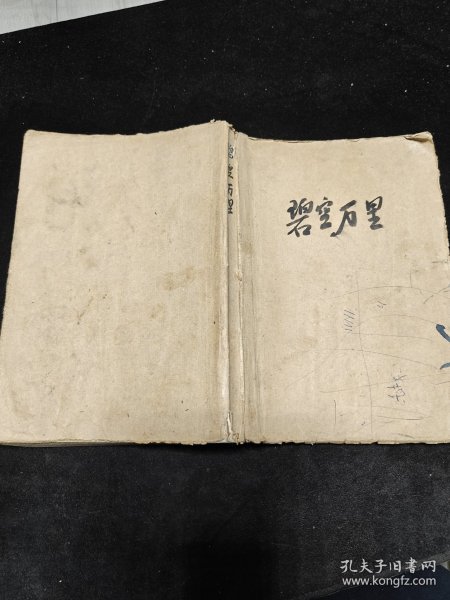 碧空万里
碧空万里
孔夫子旧书网
www.kongfz.com